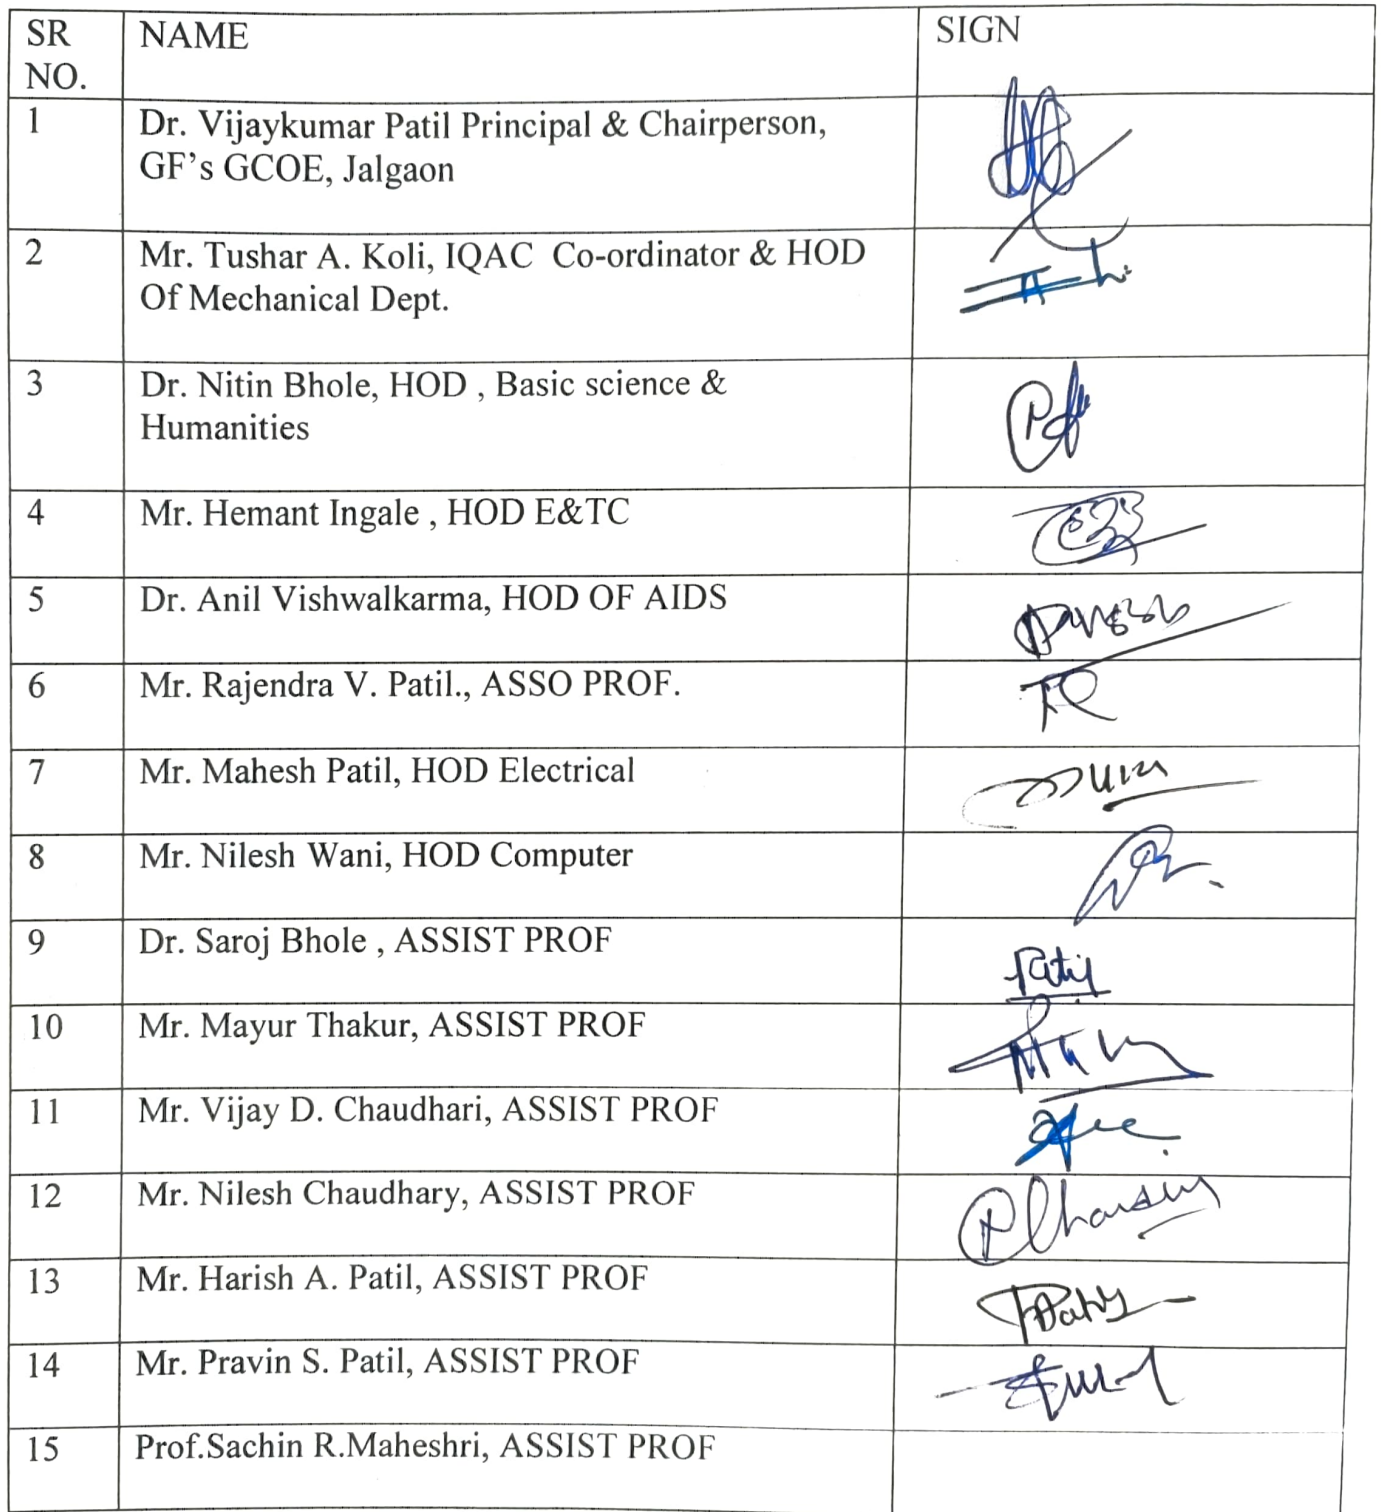 SR NAME SIGN
NO.
1 Dr. Vijaykumar Patil Principal & Chairperson,
GF's GCOE, Jalgaon
2 Mr. Tushar A. Koli, IQAC Co-ordinator & HOD
Of Mechanical Dept.
3 Dr. Nitin Bhole, HOD , Basic science &
Humanities
4 Mr. Hemant Ingale , HOD E&TC
5 Dr. Anil Vishwalkarma, HOD OF AIDS
6 Mr. Rajendra V. Patil., ASSO PROF.
7 Mr. Mahesh Patil, HOD Electrical
8 Mr. Nilesh Wani, HOD Computer
9 Dr. Saroj Bhole , ASSIST PROF
10 Mr. Mayur Thakur, ASSIST PROF
11 Mr. Vijay D. Chaudhari, ASSIST PROF
12 Mr. Nilesh Chaudhary, ASSIST PROF
13 Mr. Harish A. Patil, ASSIST PROF
14 Mr. Pravin S. Patil, ASSIST PROF
15 Prof.Sachin R.Maheshri, ASSIST PROF